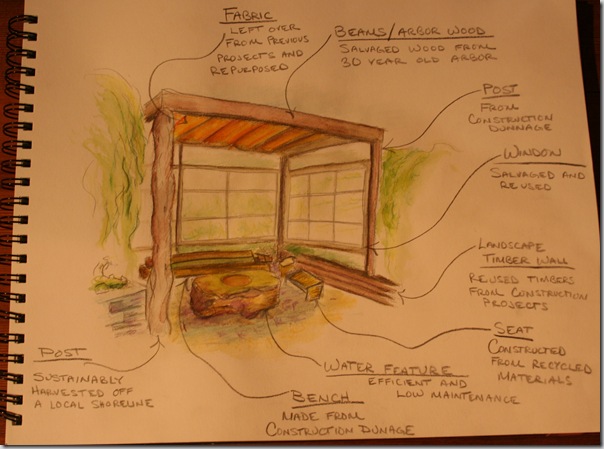 FABRIC
LEFT OVER
FROM PREVIOUS
PROJECTS AND
REPURPOSED
BEAMS/ARBOR WOOD
SALVAGED WOOD FROM
30 YEAR OLD ARBOR
POST
FROM
CONSTRUCTION
DUNNAGE
WINDOW
SALVAGED AND
REUSED
LANDSCAPE
TIMBER WALL
REUSED TIMBERS
FROM CONSTRUCTION
PROJECTS
SEAT
CONSTRUCTED
FROM RECYCLED
MATERIALS
WATER FEATURE
EFFICIENT AND
LOW MAINTENANCE
BENCH
MADE FROM
CONSTRUCTION DUNAGE
POST
SUSTAINABLY
HARVESTED OFF
A LOCAL SHORELINE